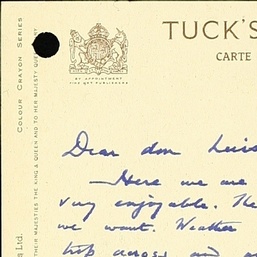 TUCK'S
CARTE
BY APPOINTMENT
FINE ART PUBLISHERS
COLOUR CRAYON SERIES
THEIR MAJESTIES THE KING & QUEEN AND TO HER MAJESTY QU
g Ltd.
Dear don Luis
Here we are
very enjoyable. The
we want. Weather
trip across and